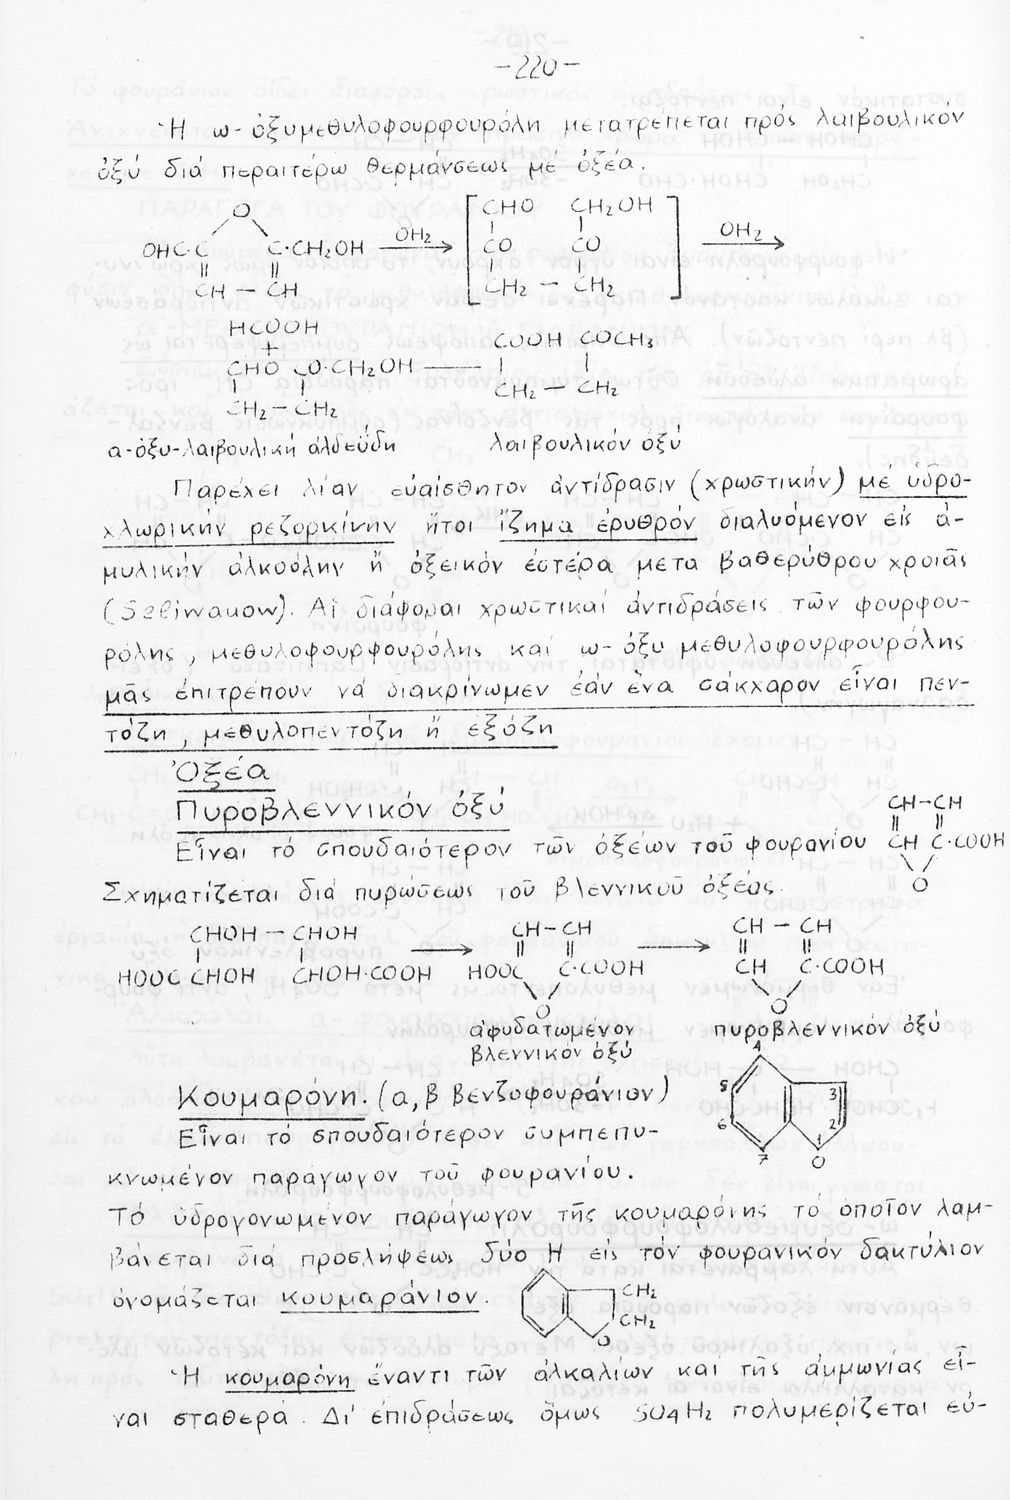 -220-
Ἡ ω-ὀξυμεθυλοφουρφουρόλη μετατρέπεται πρός λαιβουλικόν
ὀξύ διά περαιτέρω θερμάνσεως μέ ὀξέα.
O
CHO CH₂OH
OHC·C C·CH₂OH OH₂ CO CO OH₂
CH — CH CH₂ — CH₂
HCOOH
+
COOH COCH₃
CHO CO·CH₂OH
CH₂ — CH₂
CH₂ — CH₂
α-ὀξυ-λαιβουλική ἀλδεΰδη λαιβουλικόν ὀξύ
Παρέχει λίαν εὐαίσθητον ἀντίδρασιν (χρωστικήν) μέ ὑδρο-
χλωρικήν ρεζορκίνην ἤτοι ἵζημα ἐρυθρόν διαλυόμενον εἰς ἀ-
μυλικήν ἀλκοόλην ἤ ὀξεικόν ἐστέρα μετα βαθερύθρου χροιᾶς
(Seliwanow). Αἱ διάφοραι χρωστικαί ἀντιδράσεις τῶν φουρφου-
ρόλης, μεθυλοφουρφουρόλης και ω-ὀξυ μεθυλοφουρφουρόλης
μᾶς ἐπιτρέπουν νά διακρίνωμεν ἐάν ἕνα σάκχαρον εἶναι πεν-
τόζη, μεθυλοπεντόζη ἤ ἑξόζη
Ὀξέα
Πυροβλεννικόν ὀξύ
CH-CH
Εἶναι τό σπουδαιότερον τῶν ὀξέων τοῦ φουρανίου CH C·COOH
O
Σχηματίζεται διά πυρώσεως τοῦ βλεννικοῦ ὀξέος.
CHOH — CHOH CH-CH CH — CH
HOOC CHOH CHOH·COOH HOOC C·COOH CH C·COOH
O O
ἀφυδατωμένον πυροβλεννικόν ὀξύ
βλεννικόν ὀξύ
4
5 3
6 2
7 1
O
Κουμαρόνη. (α, β βενζοφουράνιον)
Εἶναι τό σπουδαιότερον συμπεπυ-
κνωμένον παράγωγον τοῦ φουρανίου.
Τό ὑδρογονωμένον παράγωγον τῆς κουμαρόνης τό ὁποῖον λαμ-
βάνεται διά προσλήψεως δύο H εἰς τόν φουρανικόν δακτύλιον
ὀνομάζεται κουμαράνιον. CH₂
CH₂
O
Ἡ κουμαρόνη ἔναντι τῶν ἀλκαλίων καί τῆς ἀμμωνίας εἶ-
ναι σταθερά. Δι' ἐπιδράσεως ὅμως SO₄H₂ πολυμερίζεται εὐ-